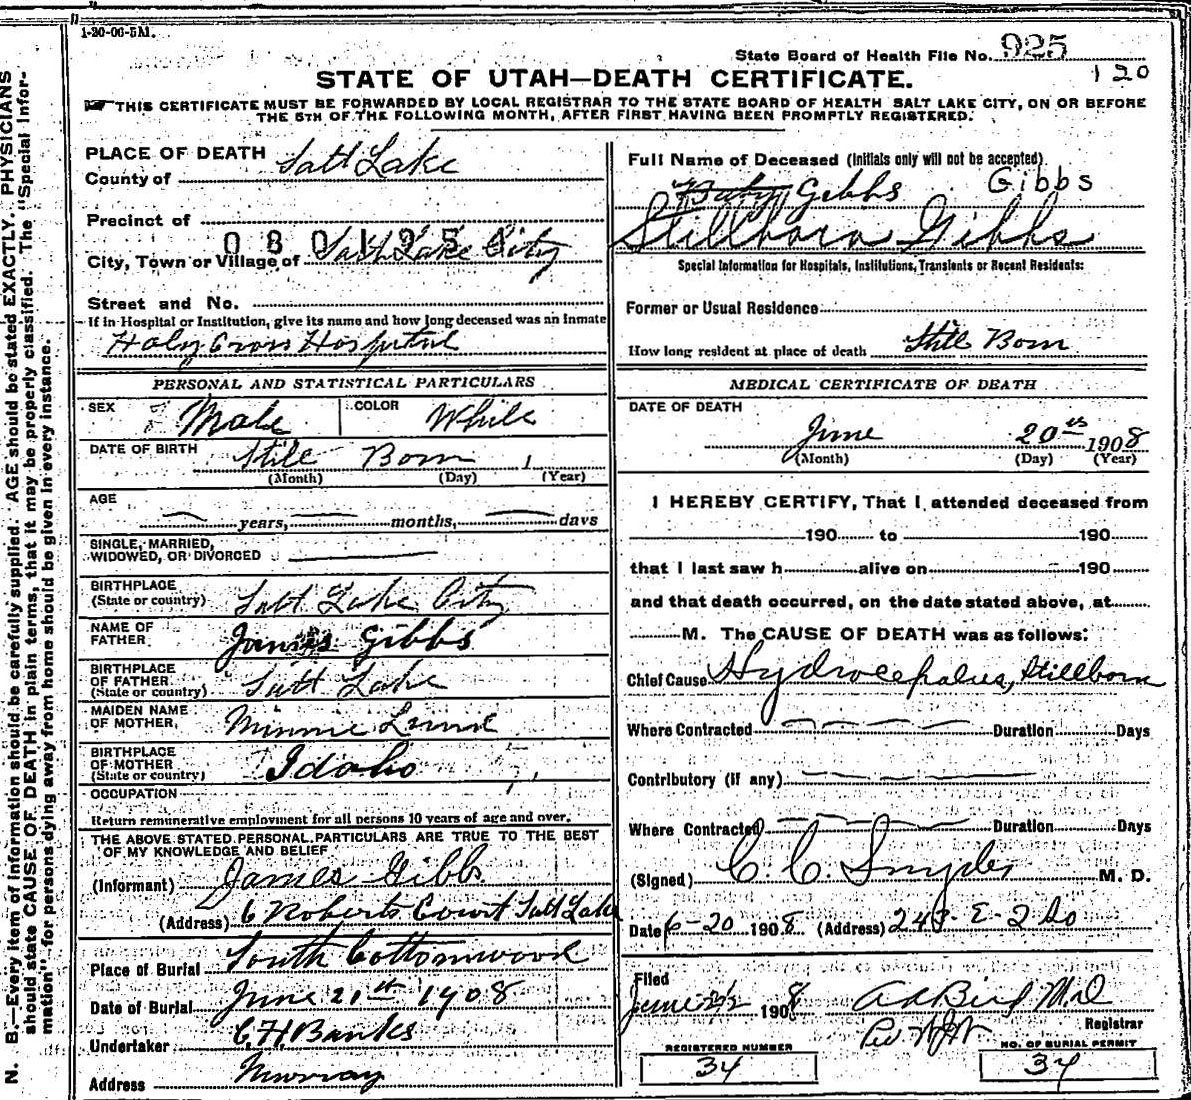 1-20-06-5M.
State Board of Health File No. 925
120
STATE OF UTAH—DEATH CERTIFICATE.
THIS CERTIFICATE MUST BE FORWARDED BY LOCAL REGISTRAR TO THE STATE BOARD OF HEALTH SALT LAKE CITY, ON OR BEFORE
THE 5TH OF THE FOLLOWING MONTH, AFTER FIRST HAVING BEEN PROMPTLY REGISTERED.
N. B.—Every item of information should be carefully supplied. AGE should be stated EXACTLY. PHYSICIANS
should state CAUSE OF DEATH in plain terms, that it may be properly classified. The "Special Infor-
mation" for persons dying away from home should be given in every instance.
PLACE OF DEATH
County of Salt Lake
Precinct of
080195
City, Town or Village of Salt Lake City
Street and No.
If in Hospital or Institution, give its name and how long deceased was an inmate
Holy Cross Hospital
PERSONAL AND STATISTICAL PARTICULARS
SEX Male COLOR White
DATE OF BIRTH Still Born 1
(Month) (Day) (Year)
AGE
years, months, days
SINGLE, MARRIED,
WIDOWED, OR DIVORCED
BIRTHPLACE
(State or country) Salt Lake City
NAME OF
FATHER James Gibbs
BIRTHPLACE
OF FATHER
(State or country) Salt Lake
MAIDEN NAME
OF MOTHER Minnie Lund
BIRTHPLACE
OF MOTHER
(State or country) Idaho
OCCUPATION
Return remunerative employment for all persons 10 years of age and over.
THE ABOVE STATED PERSONAL PARTICULARS ARE TRUE TO THE BEST
OF MY KNOWLEDGE AND BELIEF
(Informant) James Gibbs
(Address) 6 Roberts Court Salt Lake
Place of Burial South Cottonwood
Date of Burial June 21st 1908
Undertaker C. H Banks
Address Murray
Full Name of Deceased (Initials only will not be accepted)
Baby Gibbs Gibbs
Stillborn Gibbs
Special Information for Hospitals, Institutions, Transients or Recent Residents:
Former or Usual Residence
How long resident at place of death Still Born
MEDICAL CERTIFICATE OF DEATH
DATE OF DEATH
June 20th 1908
(Month) (Day) (Year)
I HEREBY CERTIFY, That I attended deceased from
190 to 190
that I last saw h alive on 190
and that death occurred, on the date stated above, at
M. The CAUSE OF DEATH was as follows:
Chief Cause Hydrocephalus, Stillborn
Where Contracted Duration Days
Contributory (if any)
Where Contracted Duration Days
(Signed) C. C. Snyder M. D.
Date 6-20 1908 (Address) 243-E-2 So
Filed
June 1908
Registrar
REGISTERED NUMBER
34
NO. OF BURIAL PERMIT
34